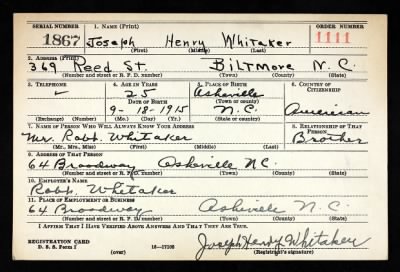 SERIAL NUMBER 1. NAME (Print) ORDER NUMBER
1867 Joseph Henry Whitaker 1111
(First) (Middle) (Last)
2. ADDRESS (Print)
369 Reed St. Biltmore N.C.
(Number and street or R. F. D. number) (Town) (County) (State)
3. TELEPHONE 4. AGE IN YEARS 5. PLACE OF BIRTH 6. COUNTRY OF CITIZENSHIP
25 Asheville
DATE OF BIRTH (Town or county)
9-18-1915 N.C. American
(Exchange) (Number) (Mo.) (Day) (Yr.) (State or country)
7. NAME OF PERSON WHO WILL ALWAYS KNOW YOUR ADDRESS 8. RELATIONSHIP OF THAT PERSON
Mr. Robt. Whitaker Brother
(Mr., Mrs., Miss) (First) (Middle) (Last)
9. ADDRESS OF THAT PERSON
64 Broadway Asheville NC.
(Number and street or R. F. D. number) (Town) (County) (State)
10. EMPLOYER'S NAME
Robt. Whitaker
11. PLACE OF EMPLOYMENT OR BUSINESS
64 Broadway Asheville N.C.
(Number and street or R. F. D. number) (Town) (County) (State)
I AFFIRM THAT I HAVE VERIFIED ABOVE ANSWERS AND THAT THEY ARE TRUE.
REGISTRATION CARD
D. S. S. Form 1 (over) 16-17105 Joseph Henry Whitaker
(Registrant's signature)